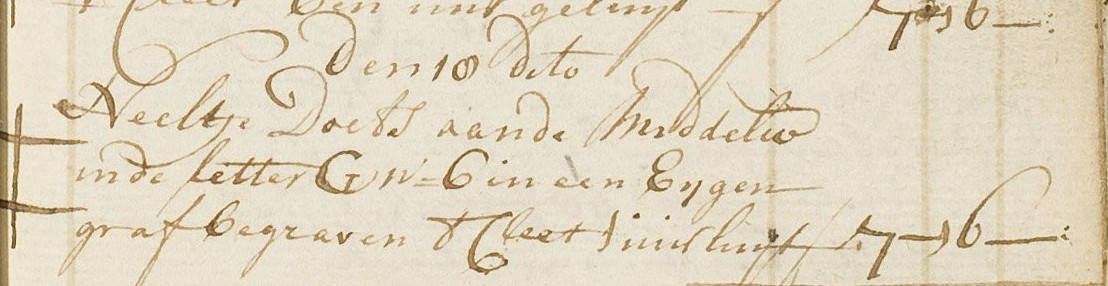 Cleet Een uur geluijt 7-16-:
Den 18 dito
Neeltje Doets aande Middelw
inde letter G N=6 in een Eygen
graf begraven t Cleet 1 uur luijt 7-16-: